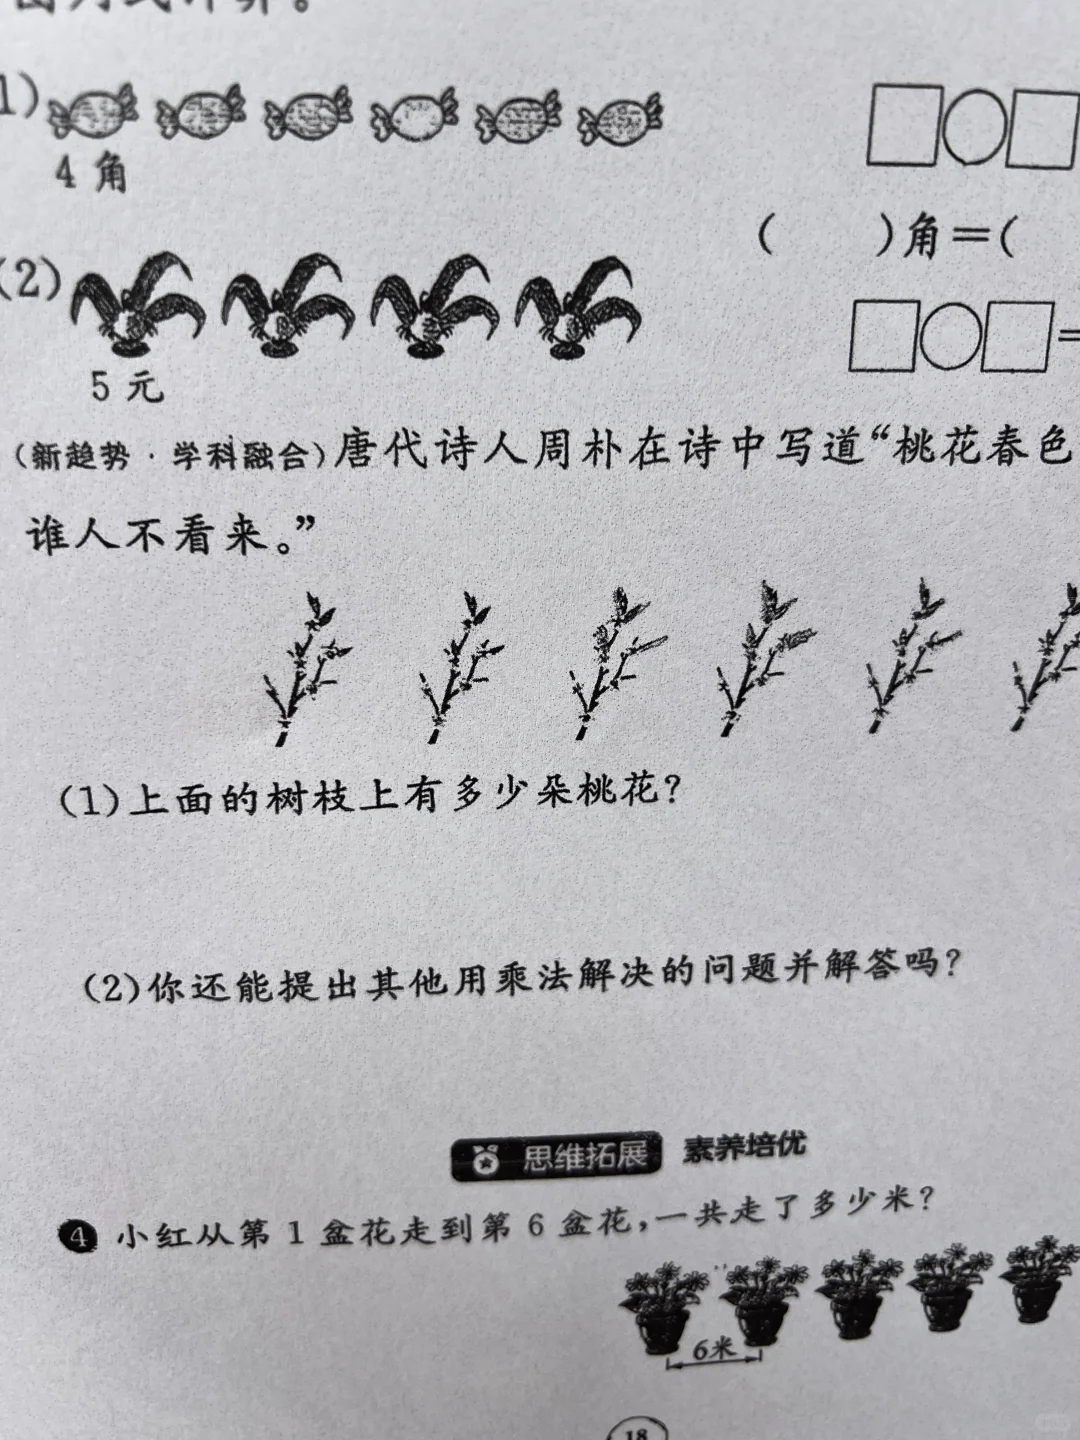 1)
4 角
( )角=(
(2)
=
5 元
(新趋势·学科融合)唐代诗人周朴在诗中写道“桃花春色
谁人不看来。”
(1)上面的树枝上有多少朵桃花?
(2)你还能提出其他用乘法解决的问题并解答吗?
思维拓展 素养培优
4 小红从第 1 盆花走到第 6 盆花,一共走了多少米?
6米
18